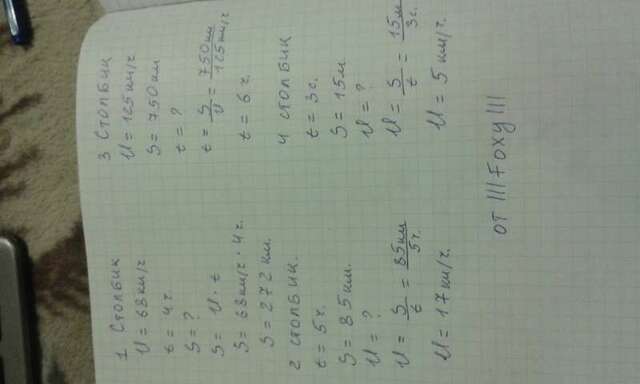 1 Столбик
V = 68 км/ч
t = 4ч
S = ?
S = V · t
S = 68км/ч · 4ч.
S = 272 км.
2 столбик.
t = 5ч.
S = 85км.
V = ?
V = S/t = 85км/5ч.
V = 17км/ч.
3 Столбик
V = 125км/ч.
S = 750км
t = ?
t = S/V = 750км/125км/ч
t = 6 ч.
4 столбик
t = 3с.
S = 15м
V = ?
V = S/t = 15м/3с.
V = 5 км/ч.
от |||Foxy|||